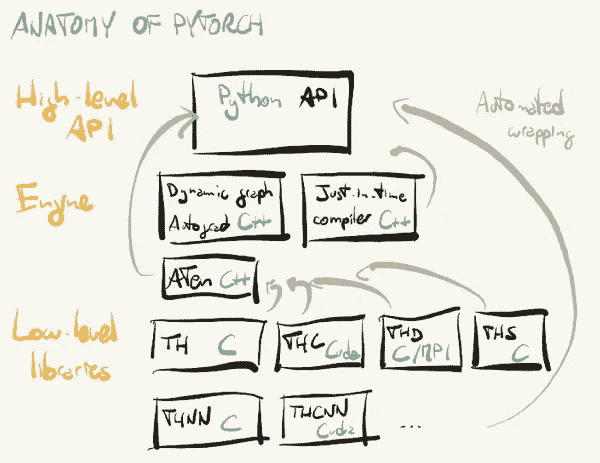 ANATOMY OF PYTORCH
High-level
API
Python API
Automated
wrapping
Engine
Dynamic graph
Autograd C++
Just-in-time
compiler C++
ATen C++
Low-level
libraries
TH C
THC Cuda
THD C/MPI
THS C
THNN C
THCNN Cuda
...